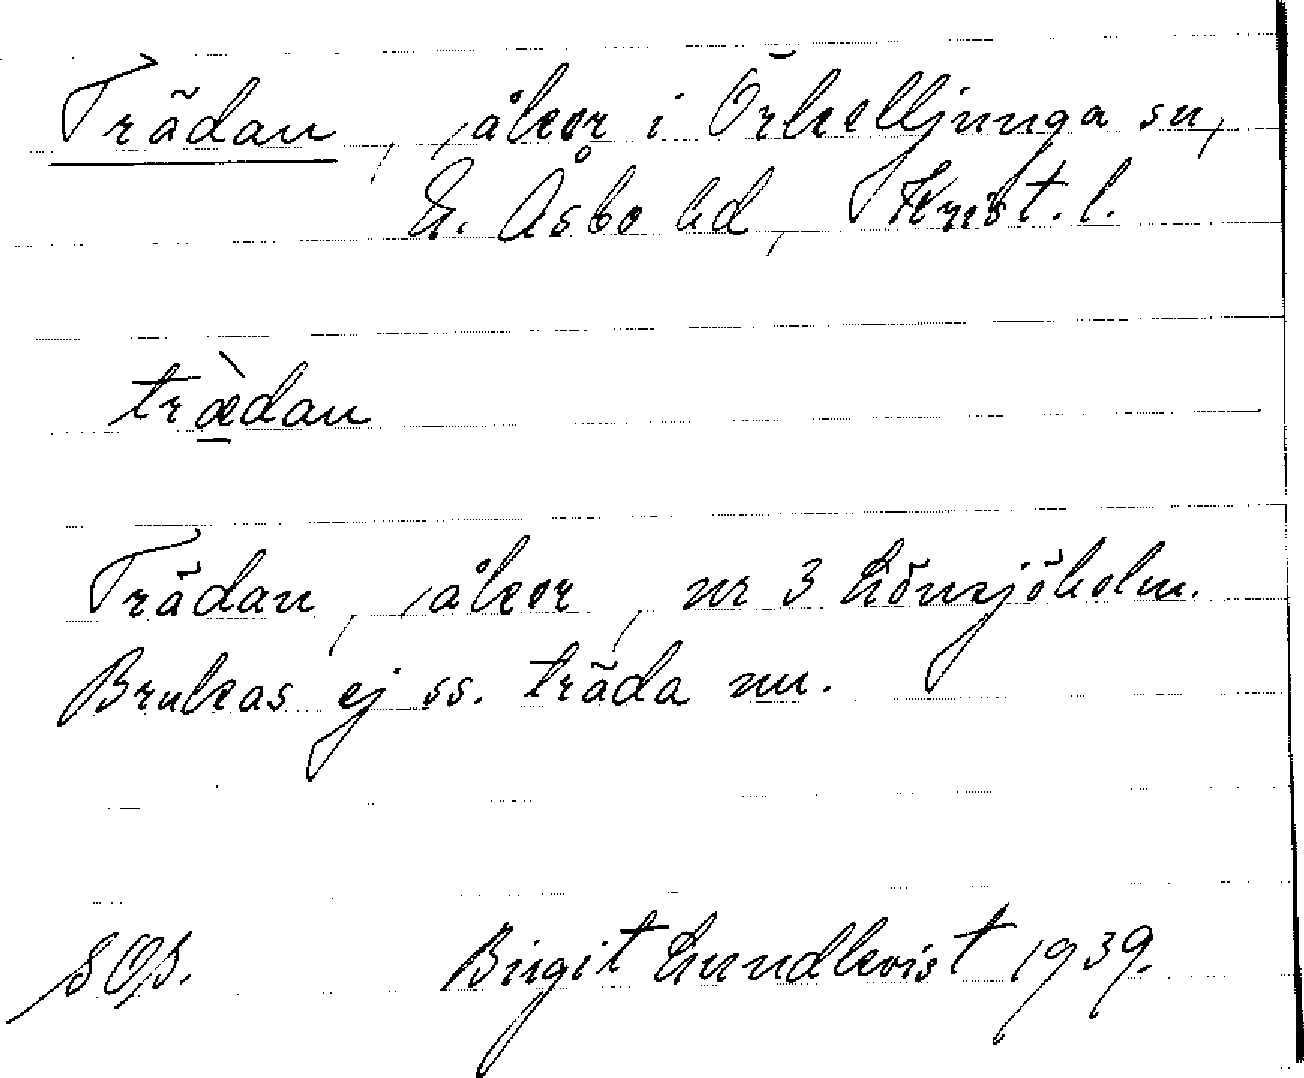 Trädan, åker i Örkelljunga sn,
N. Åsbo hd, Krist. l.
træ̠̀dan
Trädan, åker, nr 3 Lönsjöholm.
Brukas ej ss. träda nu.
SOS. Birgit Lundkvist 1939.